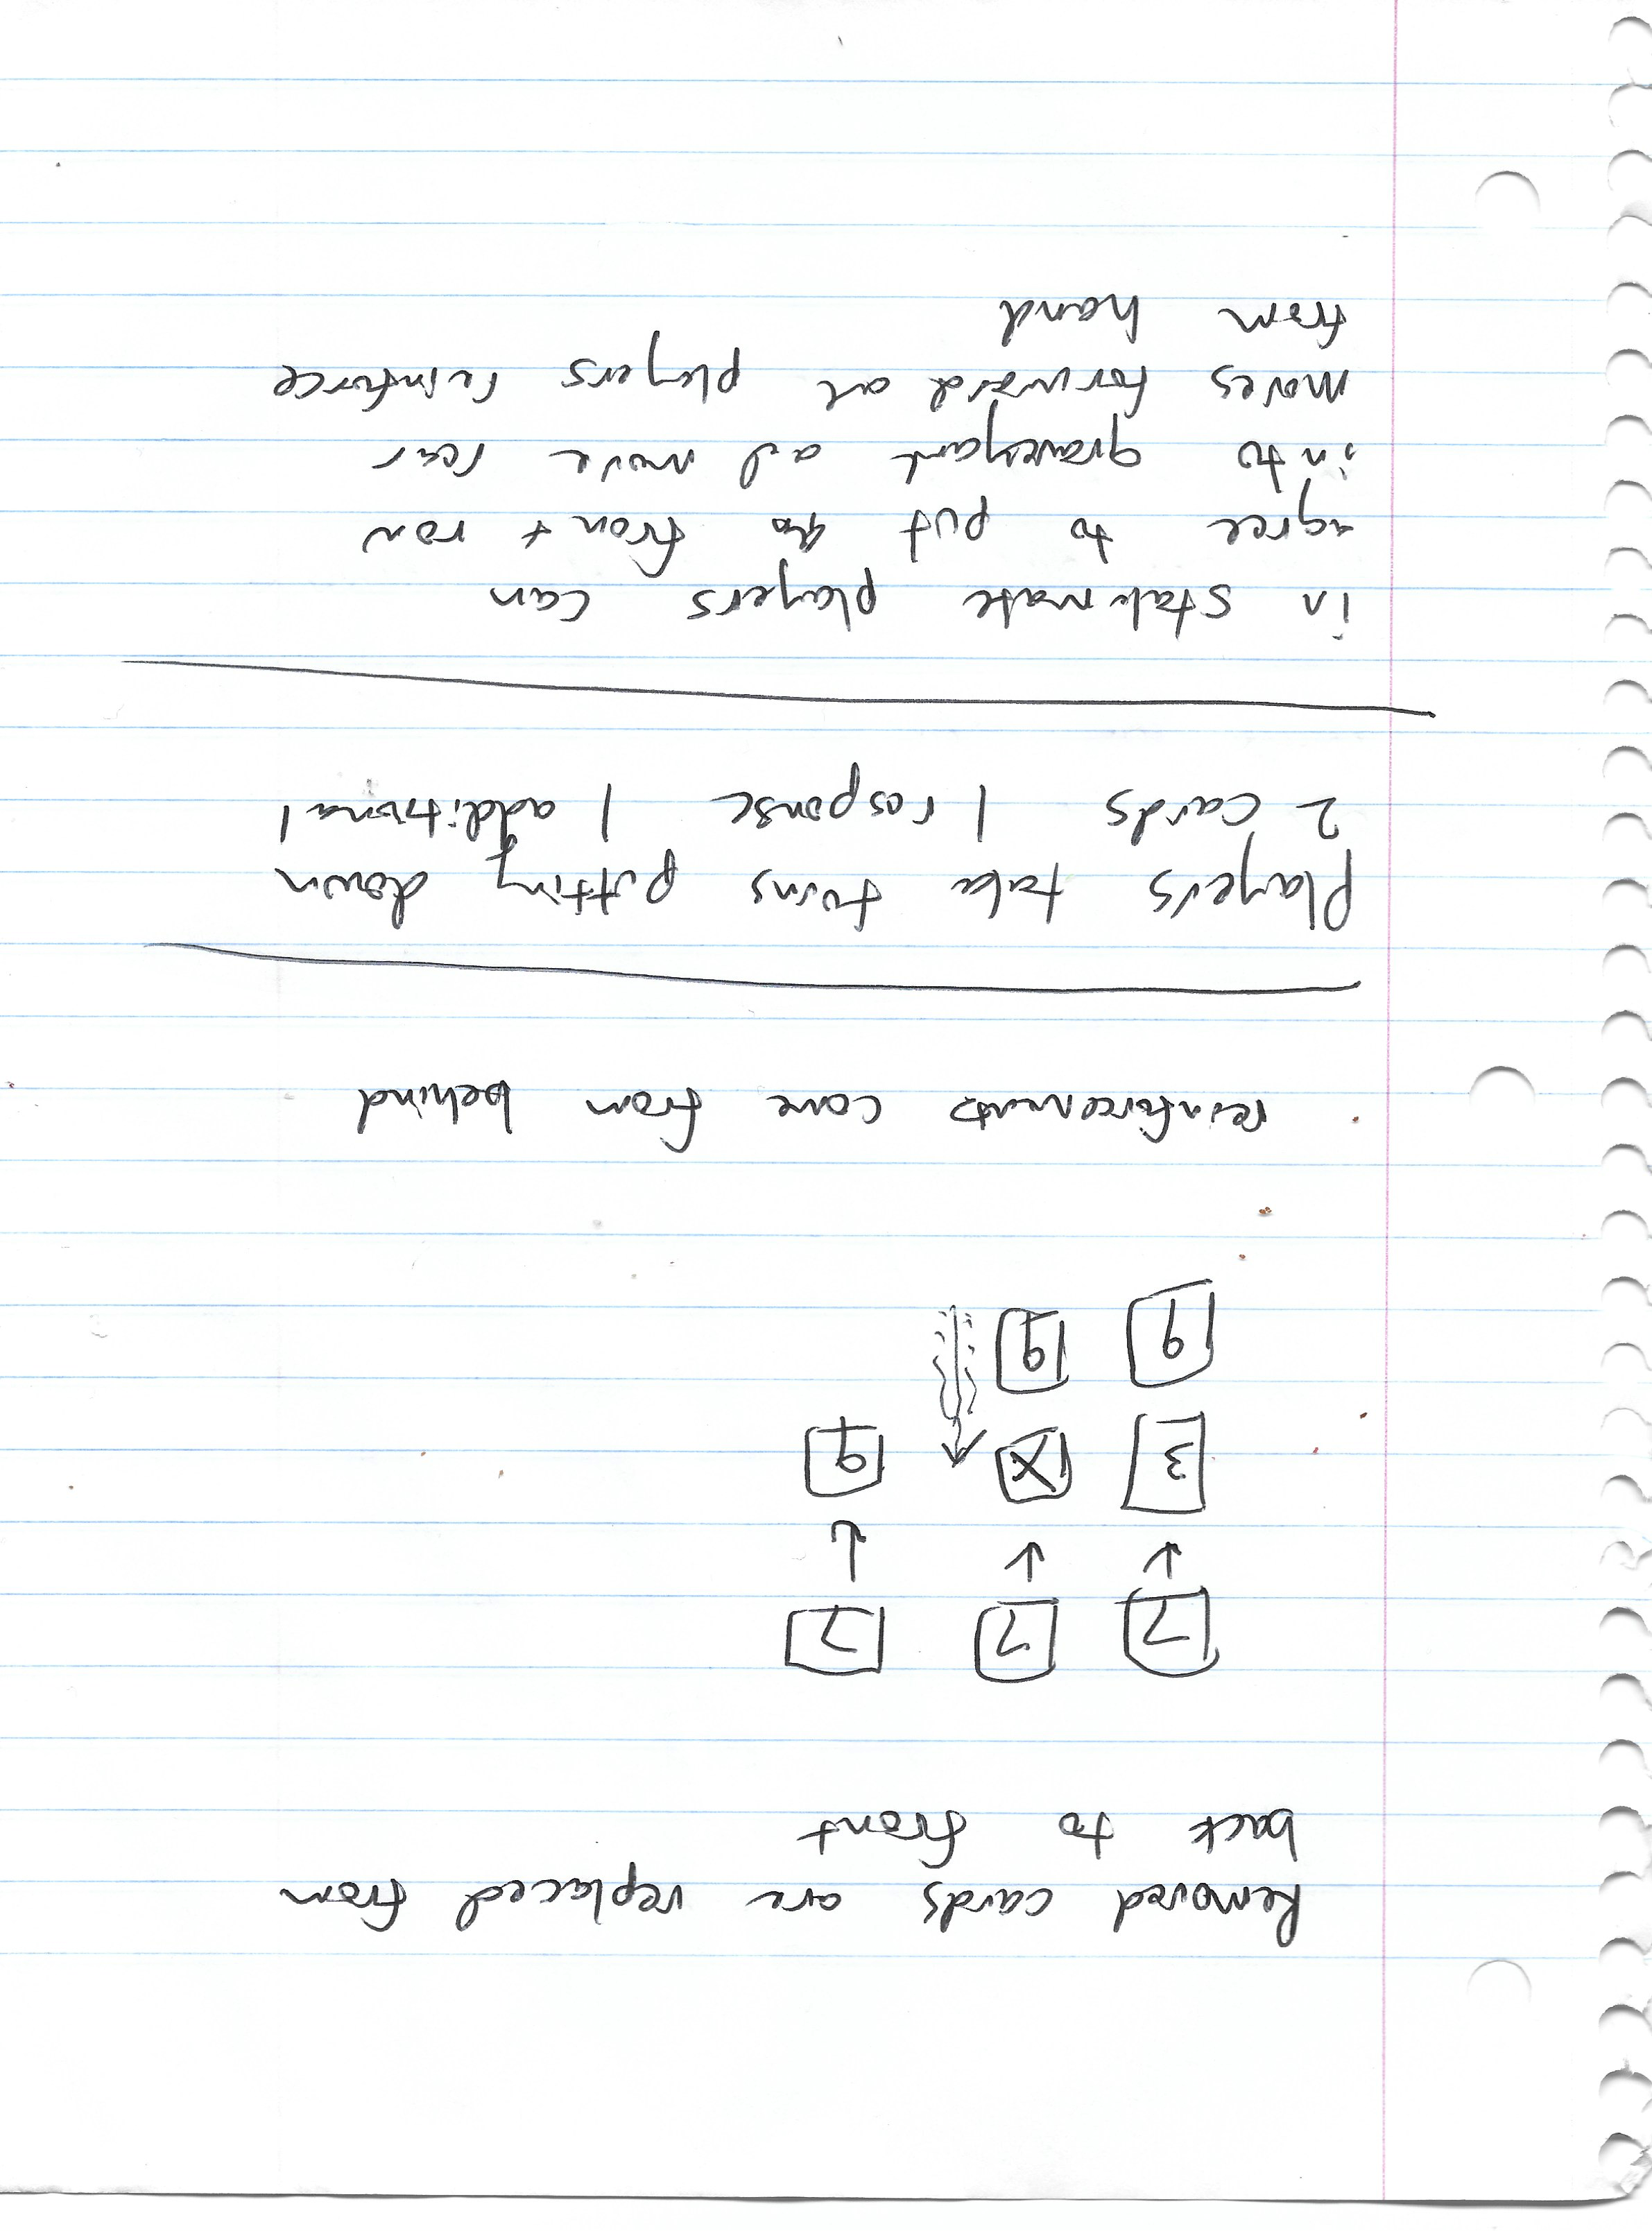 Removed cards are replaced from
back to front
7 7 7
3 X 9
9 9
reinforcements come from behind
Players take turns putting down
2 cards 1 response 1 additional
in stalemate players can
agree to put front row
into graveyard and move rear
moves forward and players reinforce
from hand